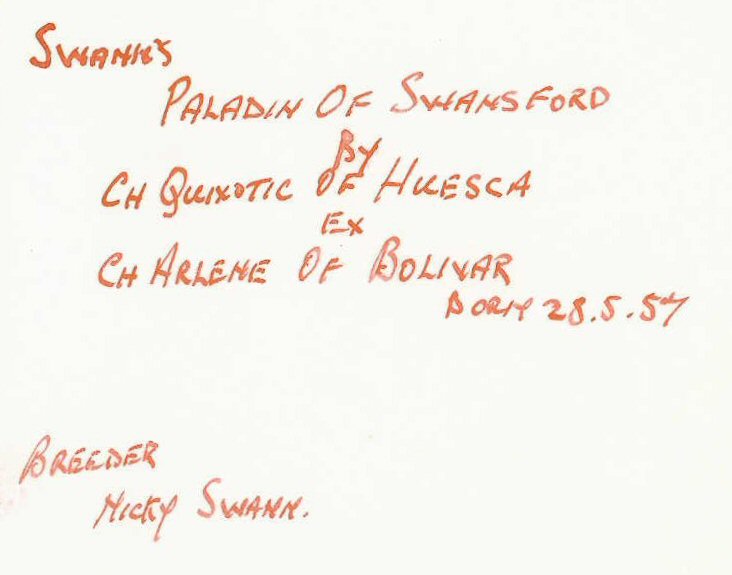 SWANN'S
PALADIN OF SWANSFORD
BY
CH QUIXOTIC OF HUESCA
EX
CH ARLENE OF BOLIVAR
BORN 28.5.54
BREEDER
NICKY SWANN.